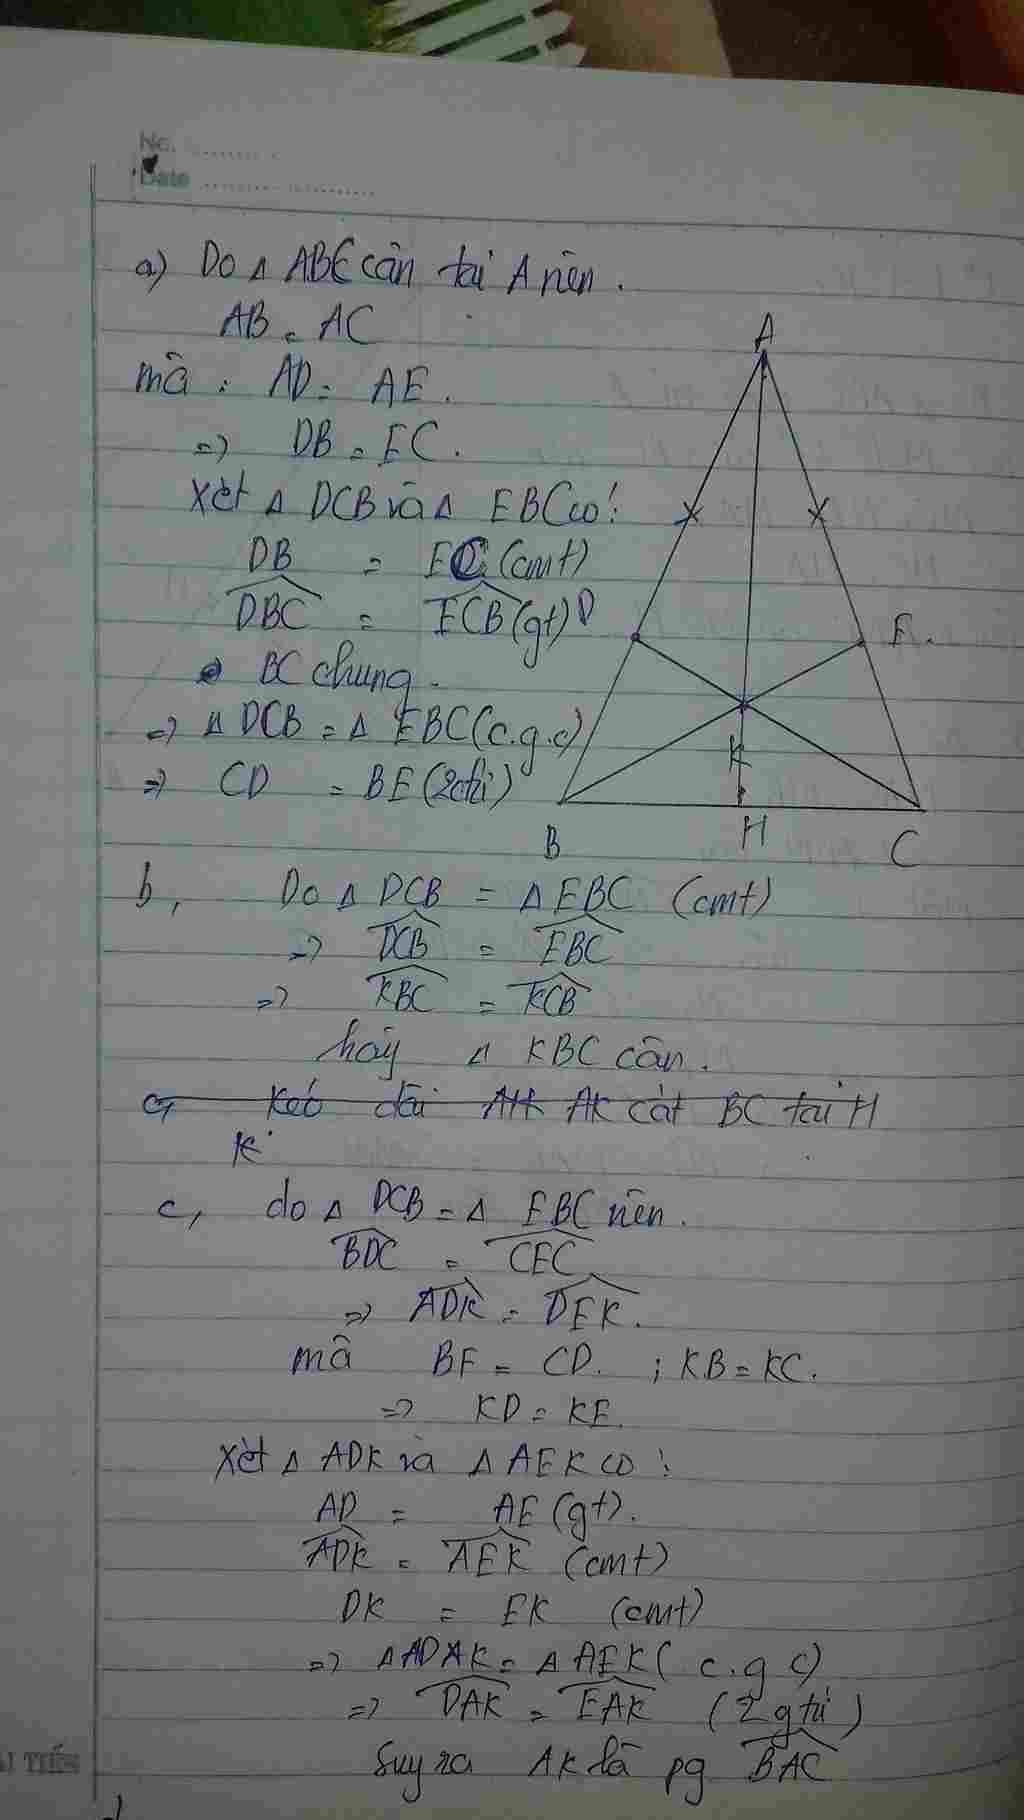 No. ........
Date ....................
a) Do Δ ABC cân tại A nên.
AB = AC
mà : AD = AE.
=> DB = EC.
Xét Δ DCB và Δ EBC có:
DB = EC (cmt)
DBC = ECB (gt)
BC chung.
=> Δ DCB = Δ EBC (c.g.c)
=> CD = BE (2ctứ)
A
D
E.
K
B
H
C
b, Do Δ DCB = Δ EBC (cmt)
=> DCB = EBC
=> KBC = KCB
hay Δ KBC cân.
c, Kéo dài AH AK cắt BC tại H
K
c, do Δ DCB = Δ EBC nên.
BDC = CEC
=> ADK = DEK.
mà BE = CD. ; KB = KC.
=> KD = KE.
Xét Δ ADK và Δ AEK có :
AD = AE (gt).
ADK = AEK (cmt)
DK = EK (cmt)
=> Δ ADAK = Δ AEK ( c.g c)
=> DAK = EAK (2 g tứ)
Suy ra AK là pg BAC
TIẾN